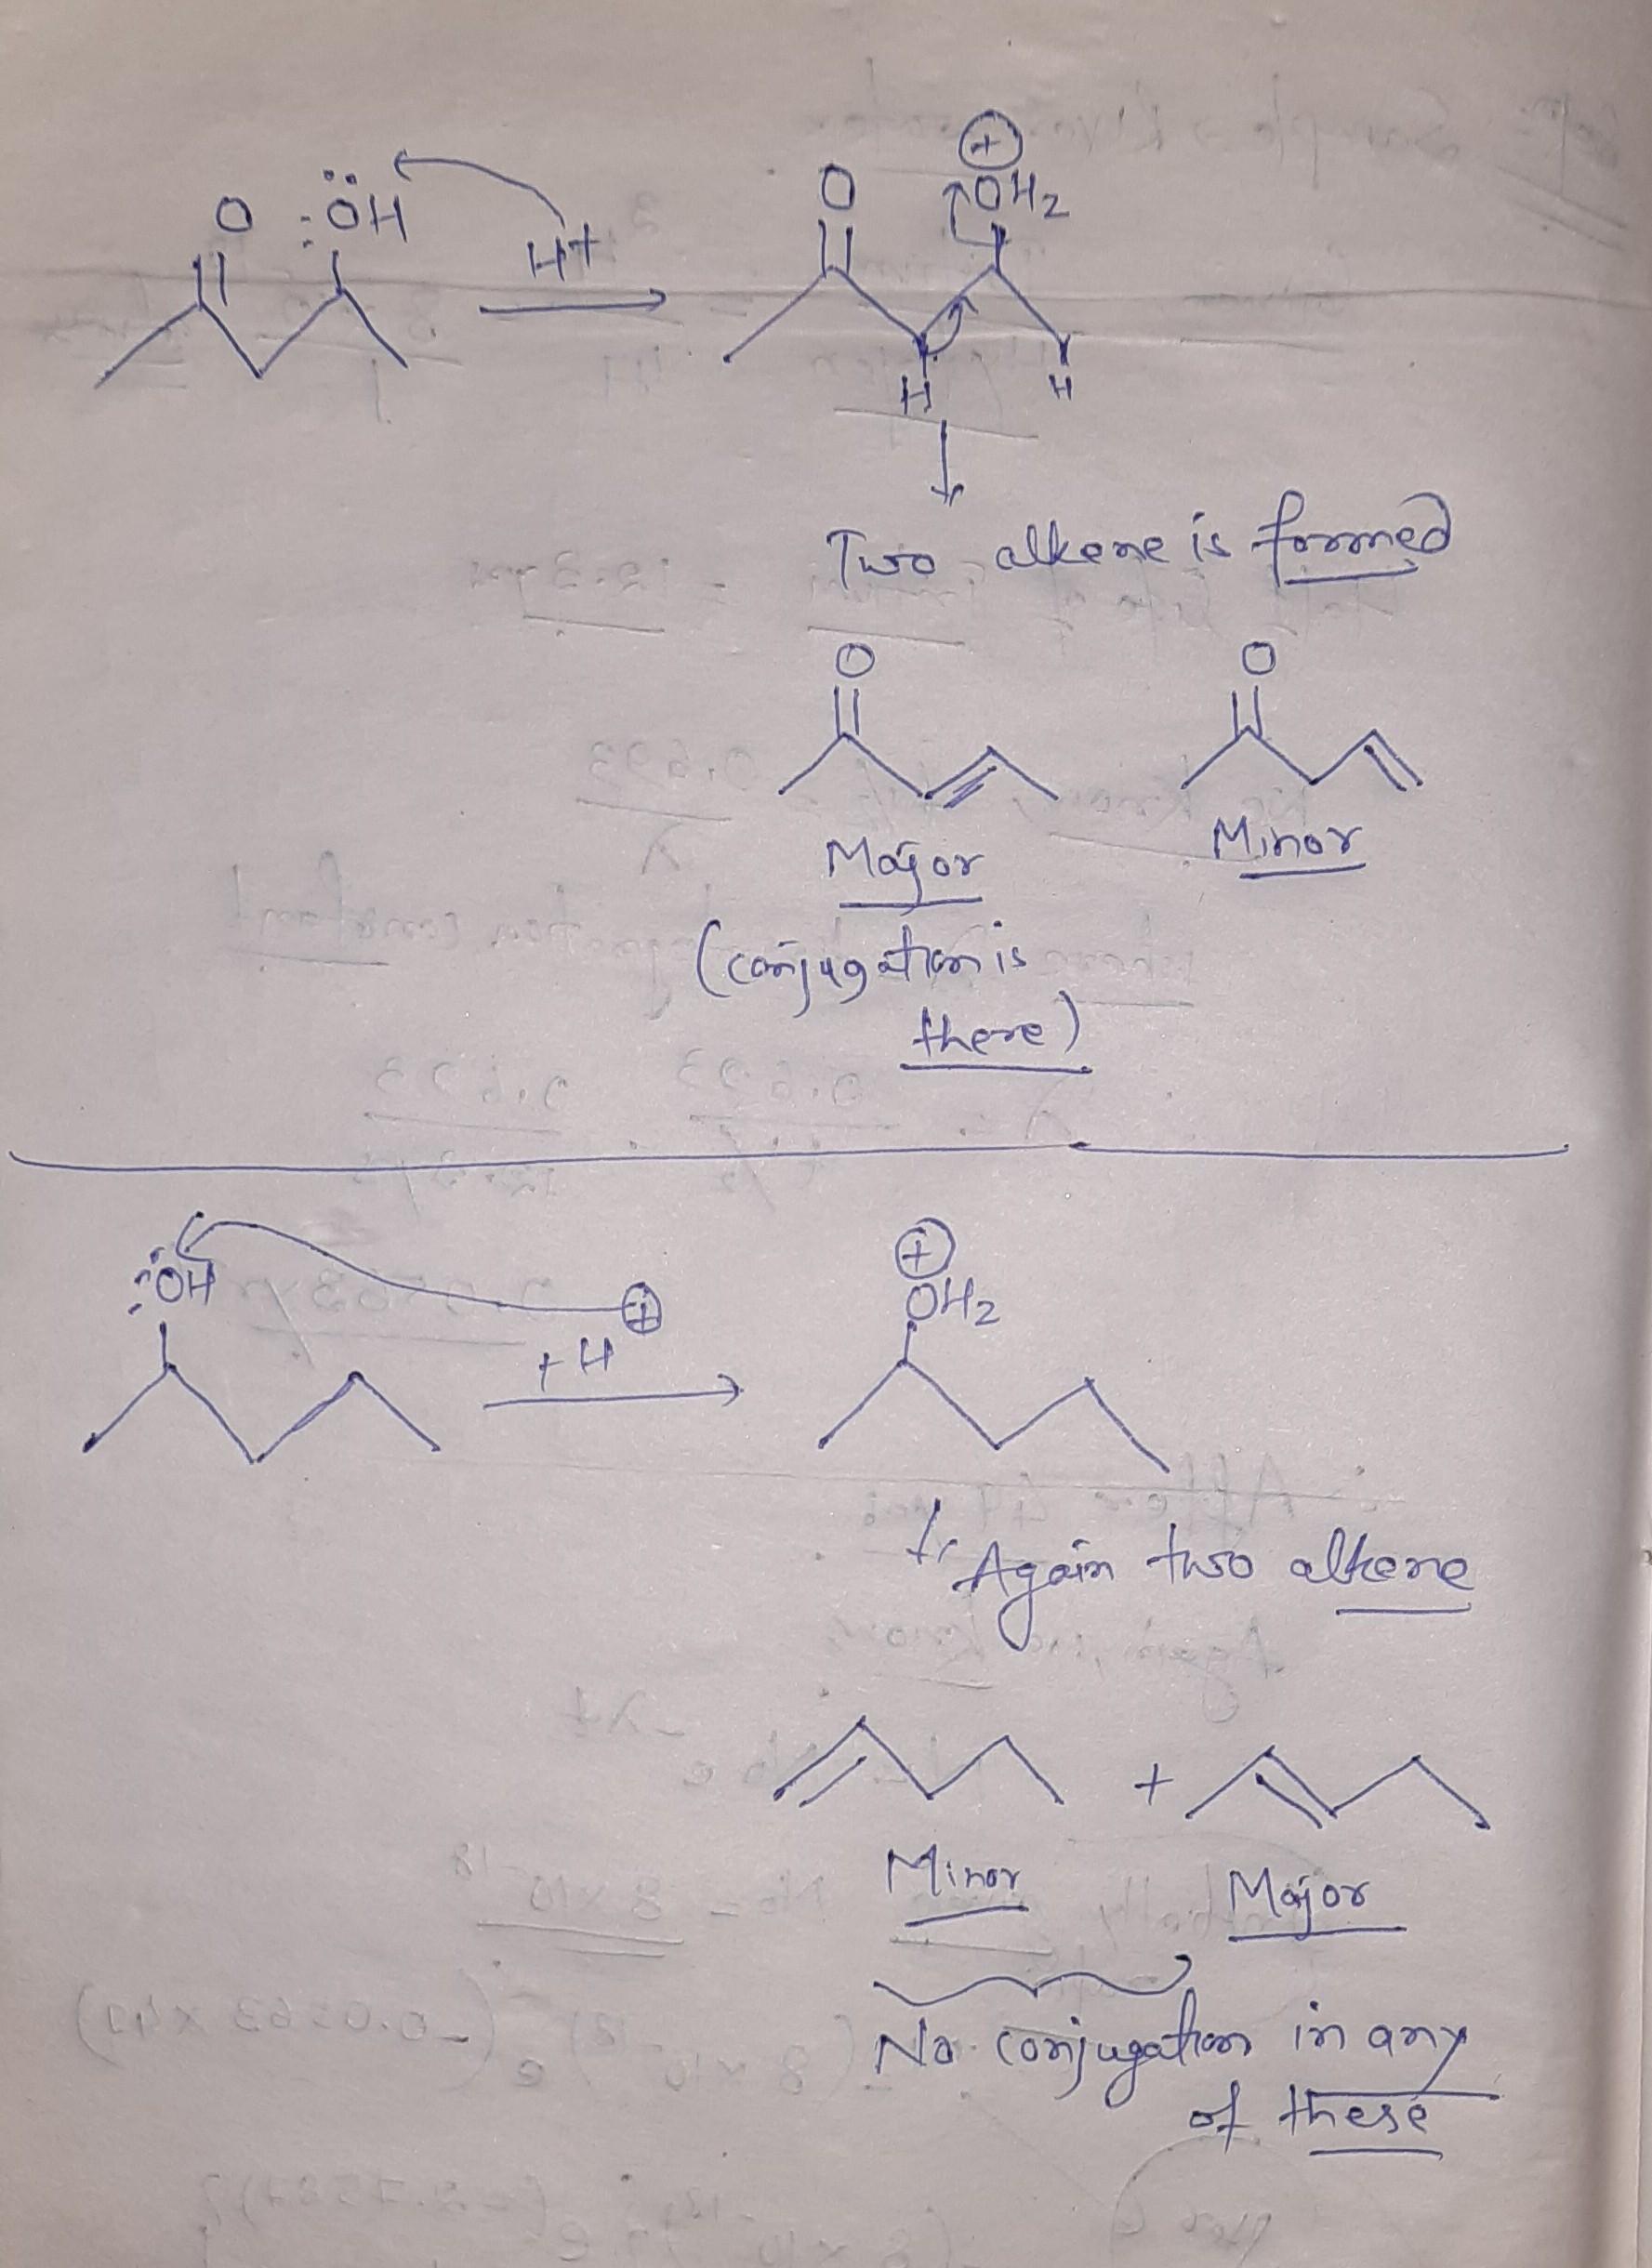 O :ÖH
H+
O ⊕
OH2
H H
Two alkene is formed
O O
Major Minor
(conjugation is
there)
:ÖH ⊕
+H
⊕
OH2
Again two alkene
+
Minor Major
No conjugation in any
of these